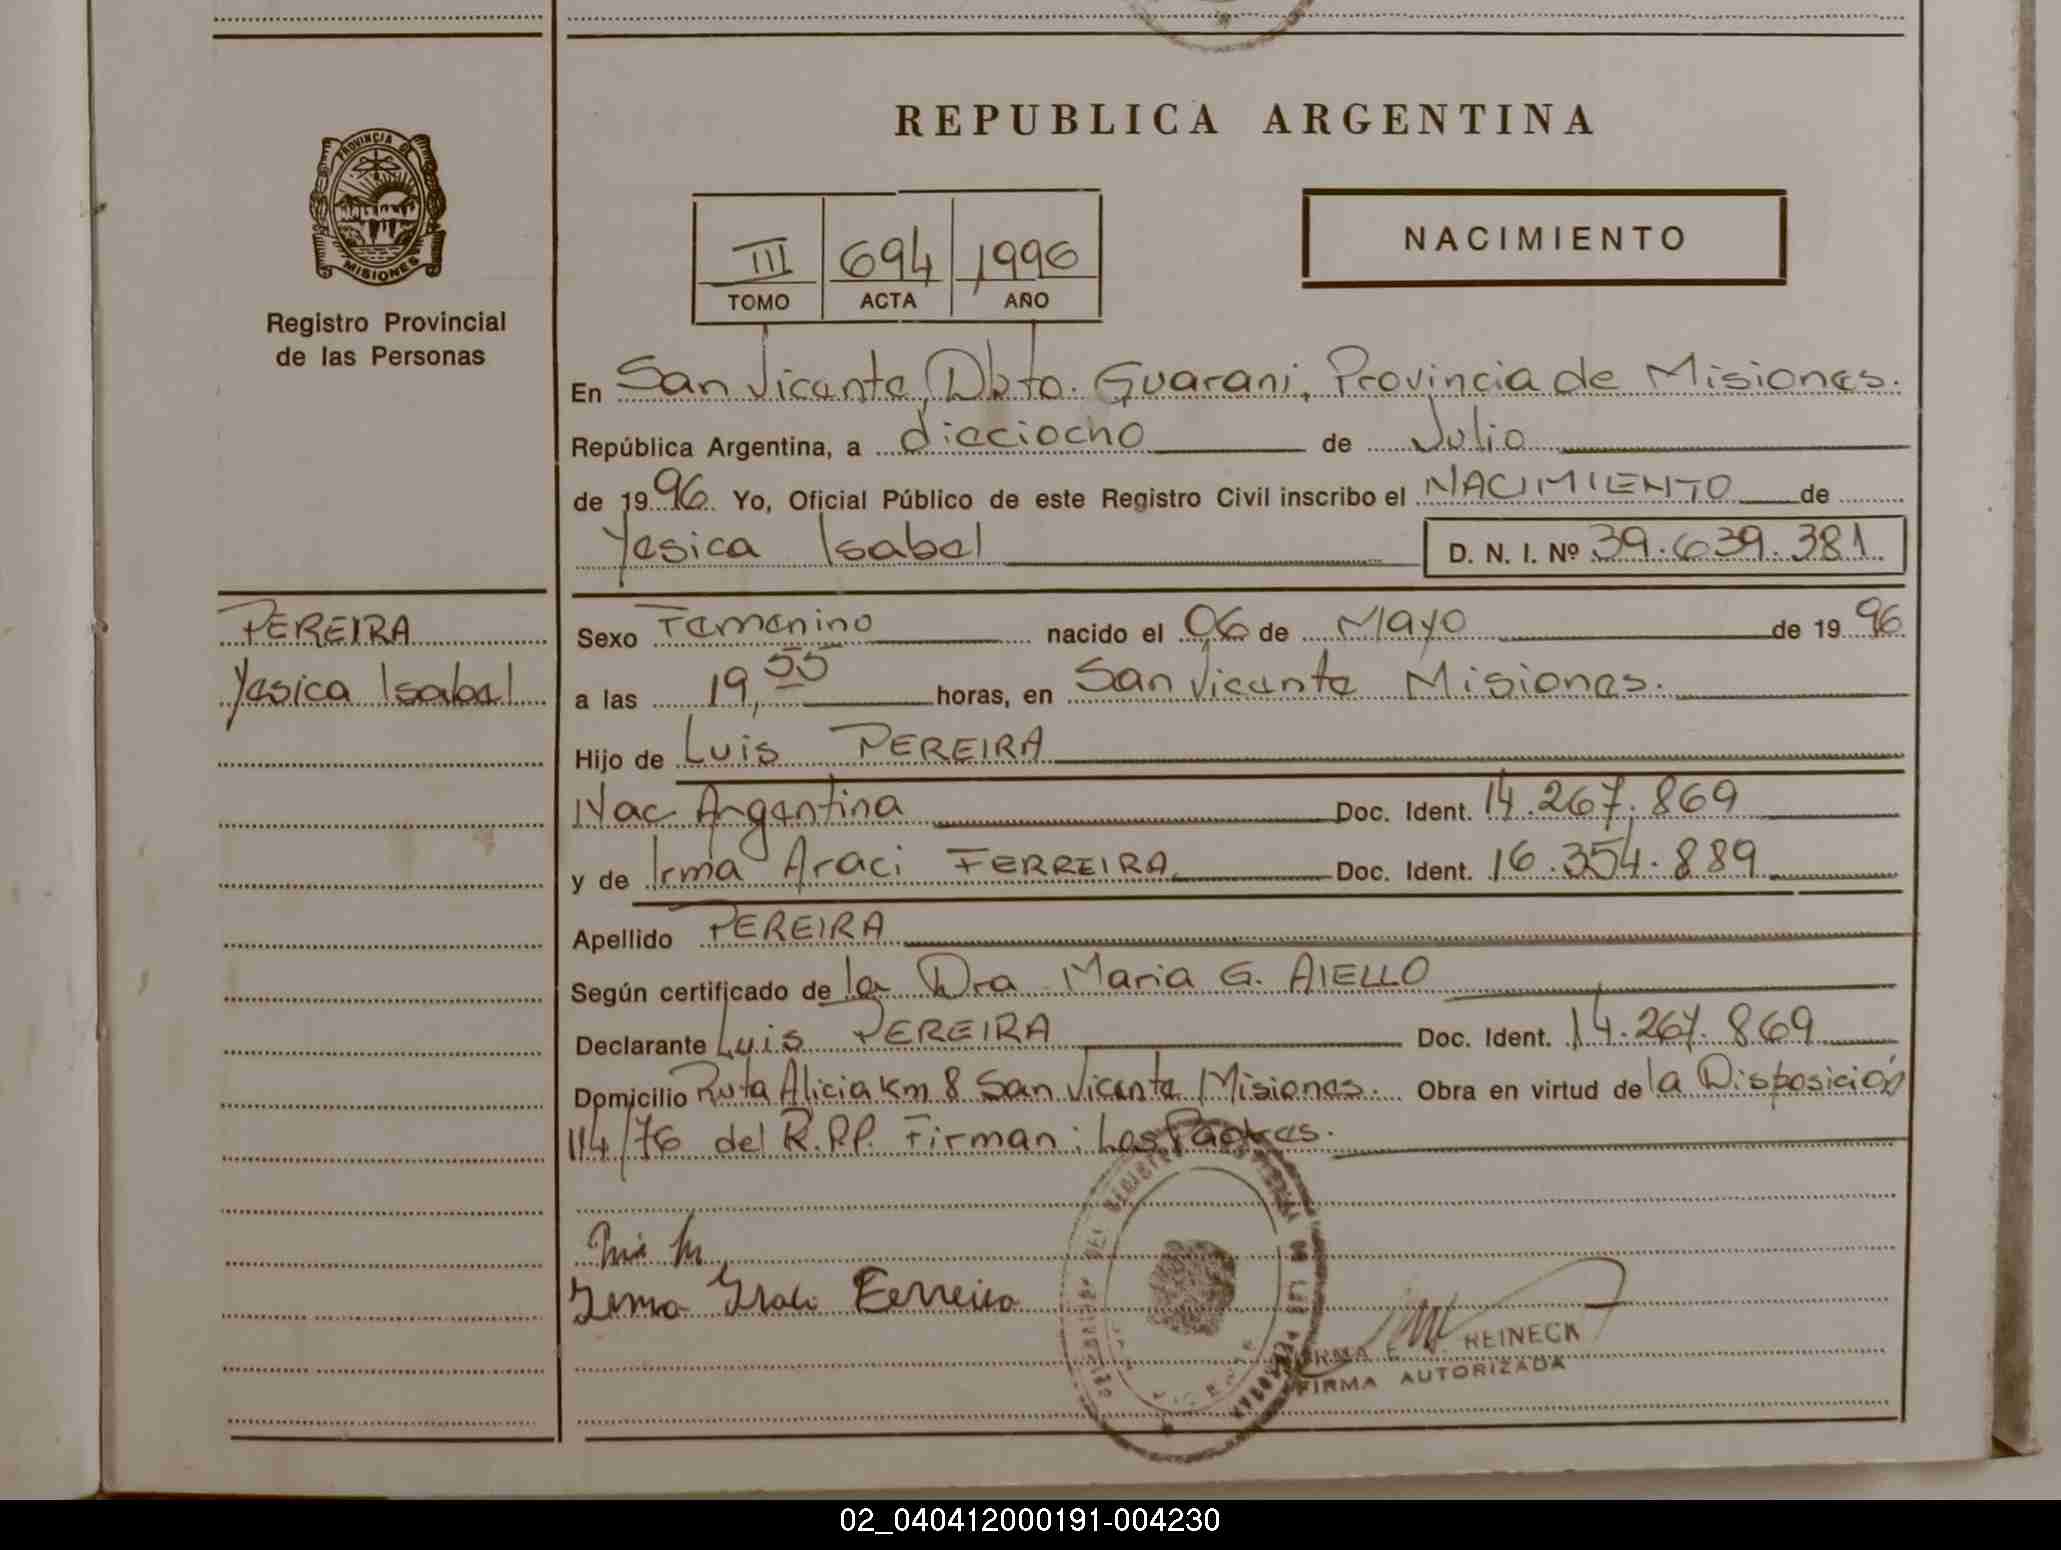 REPUBLICA ARGENTINA
PROVINCIA DE MISIONES
Registro Provincial
de las Personas
NACIMIENTO
III 694 1996
TOMO ACTA AÑO
En San Vicente, Dpto. Guarani, Provincia de Misiones.
República Argentina, a dieciocho de Julio
de 1996. Yo, Oficial Público de este Registro Civil inscribo el NACIMIENTO de
Yesica Isabel D. N. I. Nº 39.639.381
PEREIRA
Yesica Isabel
Sexo Femenino nacido el 06 de Mayo de 1996
a las 19,55 horas, en San Vicente Misiones.
Hijo de Luis PEREIRA
Nac Argentina Doc. Ident. 14.267.869
y de Irma Araci FERREIRA Doc. Ident. 16.354.889
Apellido PEREIRA
Según certificado de la Dra Maria G. AIELLO
Declarante Luis PEREIRA Doc. Ident. 14.267.869
Domicilio Ruta Alicia Km 8 San Vicente Misiones. Obra en virtud de la Disposición
114/76 del R.P.P. Firman: Los Padres.
Ferreira
REINECK
FIRMA AUTORIZADA
02_040412000191-004230